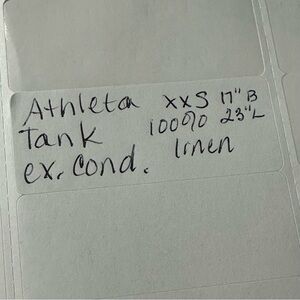 Athleta XXS 17" B
Tank 100% 23"L
ex. Cond. linen